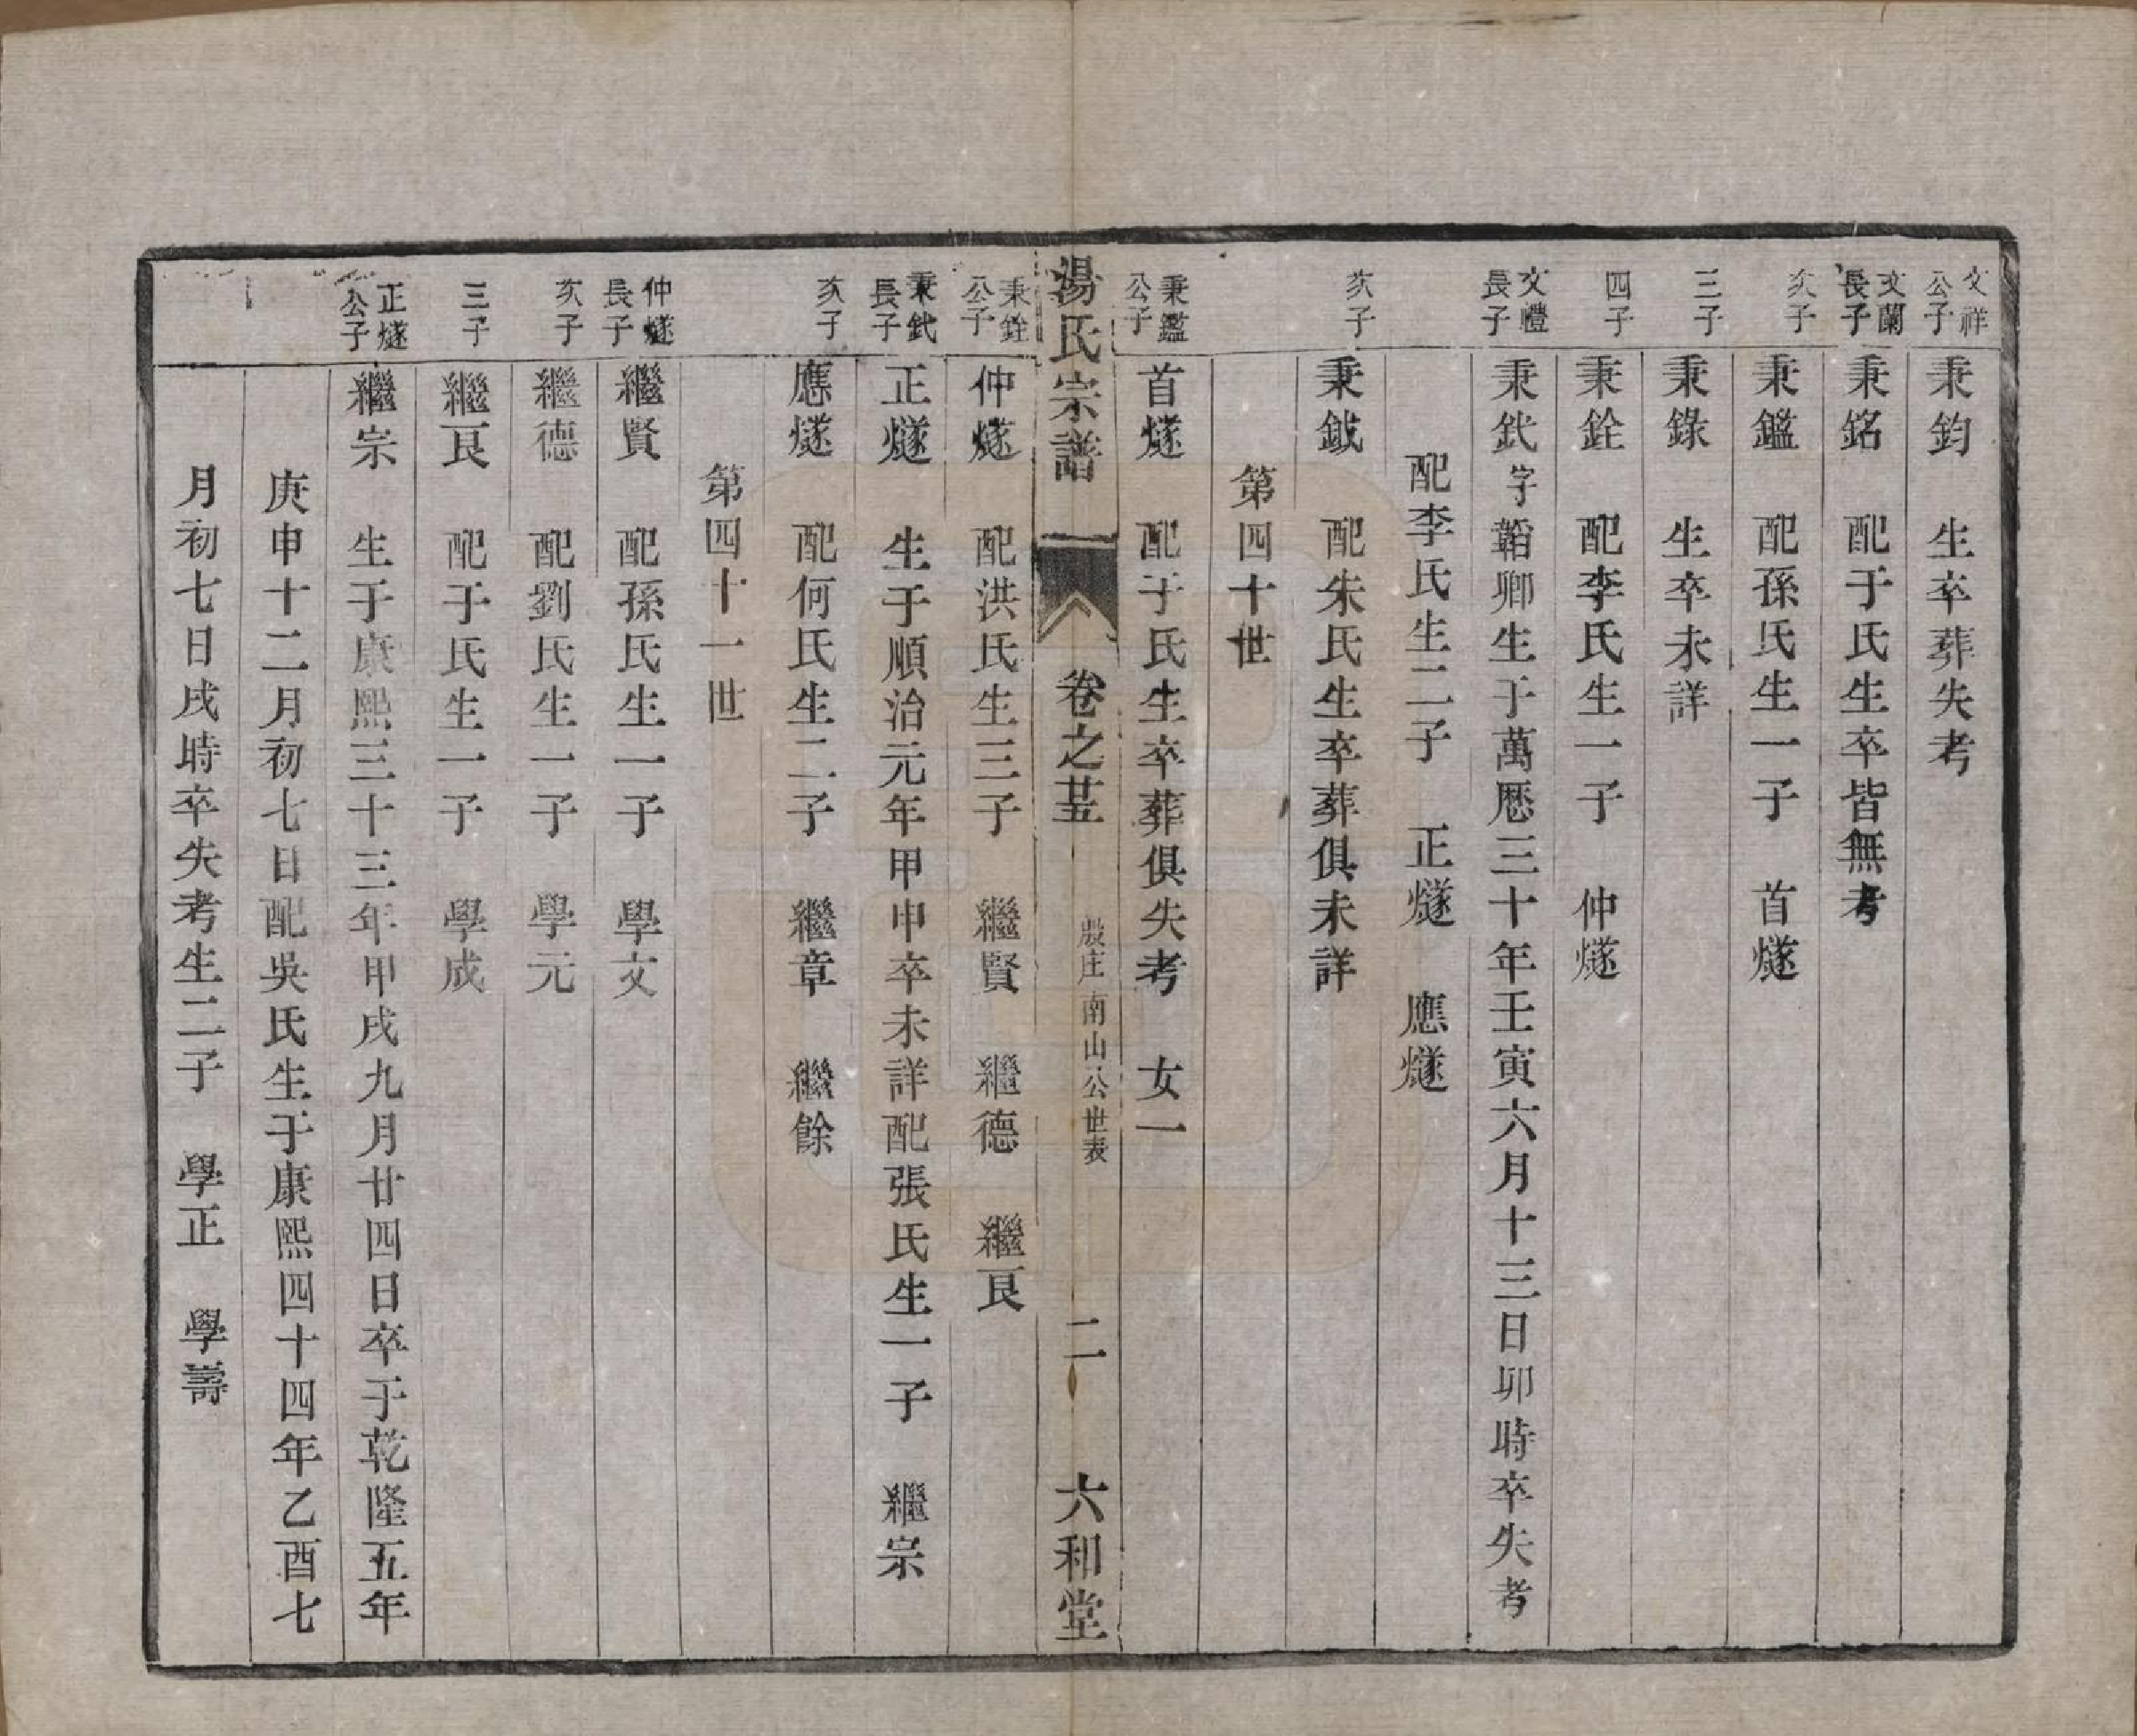 文祥公子 秉鈞 生卒葬失考
文蘭長子 秉銘 配于氏生卒皆無考
次子 秉鑑 配孫氏生一子 首燧
三子 秉錄 生卒未詳
四子 秉銓 配李氏生一子 仲燧
文禮長子 秉鈛 字韜卿生于萬厯三十年壬寅六月十三日卯時卒失考
配李氏生二子 正燧 應燧
次子 秉鉞 配朱氏生卒葬俱未詳
第四十世
秉鑑公子 首燧 配于氏生卒葬俱失考 女一
湯氏宗譜 卷之廿五 殷庄南山公世表 二 六和堂
秉銓公子 仲燧 配洪氏生三子 繼賢 繼德 繼良
秉鈛長子 正燧 生于順治元年甲申卒未詳配張氏生一子 繼宗
次子 應燧 配何氏生二子 繼章 繼餘
第四十一世
仲燧長子 繼賢 配孫氏生一子 學文
次子 繼德 配劉氏生一子 學元
三子 繼良 配于氏生一子 學成
正燧公子 繼宗 生于康熙三十三年甲戌九月廿四日卒于乾隆五年
庚申十二月初七日配吳氏生于康熙四十四年乙酉七
月初七日戌時卒失考生二子 學正 學壽